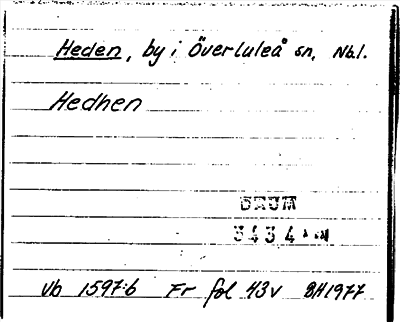 Heden, by i Överluleå sn, Nb.l.
Hedhen
3434
Vb 1597:6 Fr fol 43v BH1977